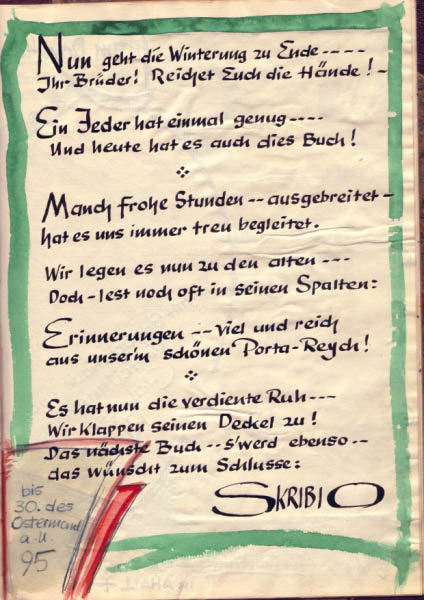 Nun geht die Winterung zu Ende-----
Ihr Brüder! Reichet Euch die Hände!-
Ein Jeder hat einmal genug----
Und heute hat es auch dies Buch!
Manch frohe Stunden -- ausgebreitet-
hat es uns immer treu begleitet.
Wir legen es nun zu den alten ---
Doch - lest noch oft in seinen Spalten:
Erinnerungen -- viel und reich
aus unserm schönen Porta-Reych!
Es hat nun die verdiente Ruh---
Wir klappen seinen Deckel zu!
Das nächste Buch -- s'werd ebenso --
das wünscht zum Schlusse:
SKRIBIO
bis
30. des
Ostermond
a. U.
95